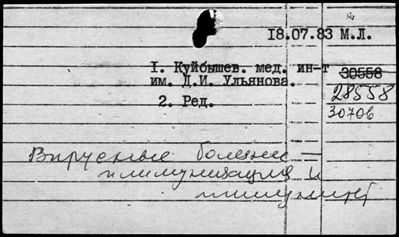 18.07.83 М.Л.
1. Куйбышев. мед. ин-т
им. Д.И. Ульянова.
30558
28558
2. Ред.
30706
Вирусные болезни —
иммунизация и
иммунитет